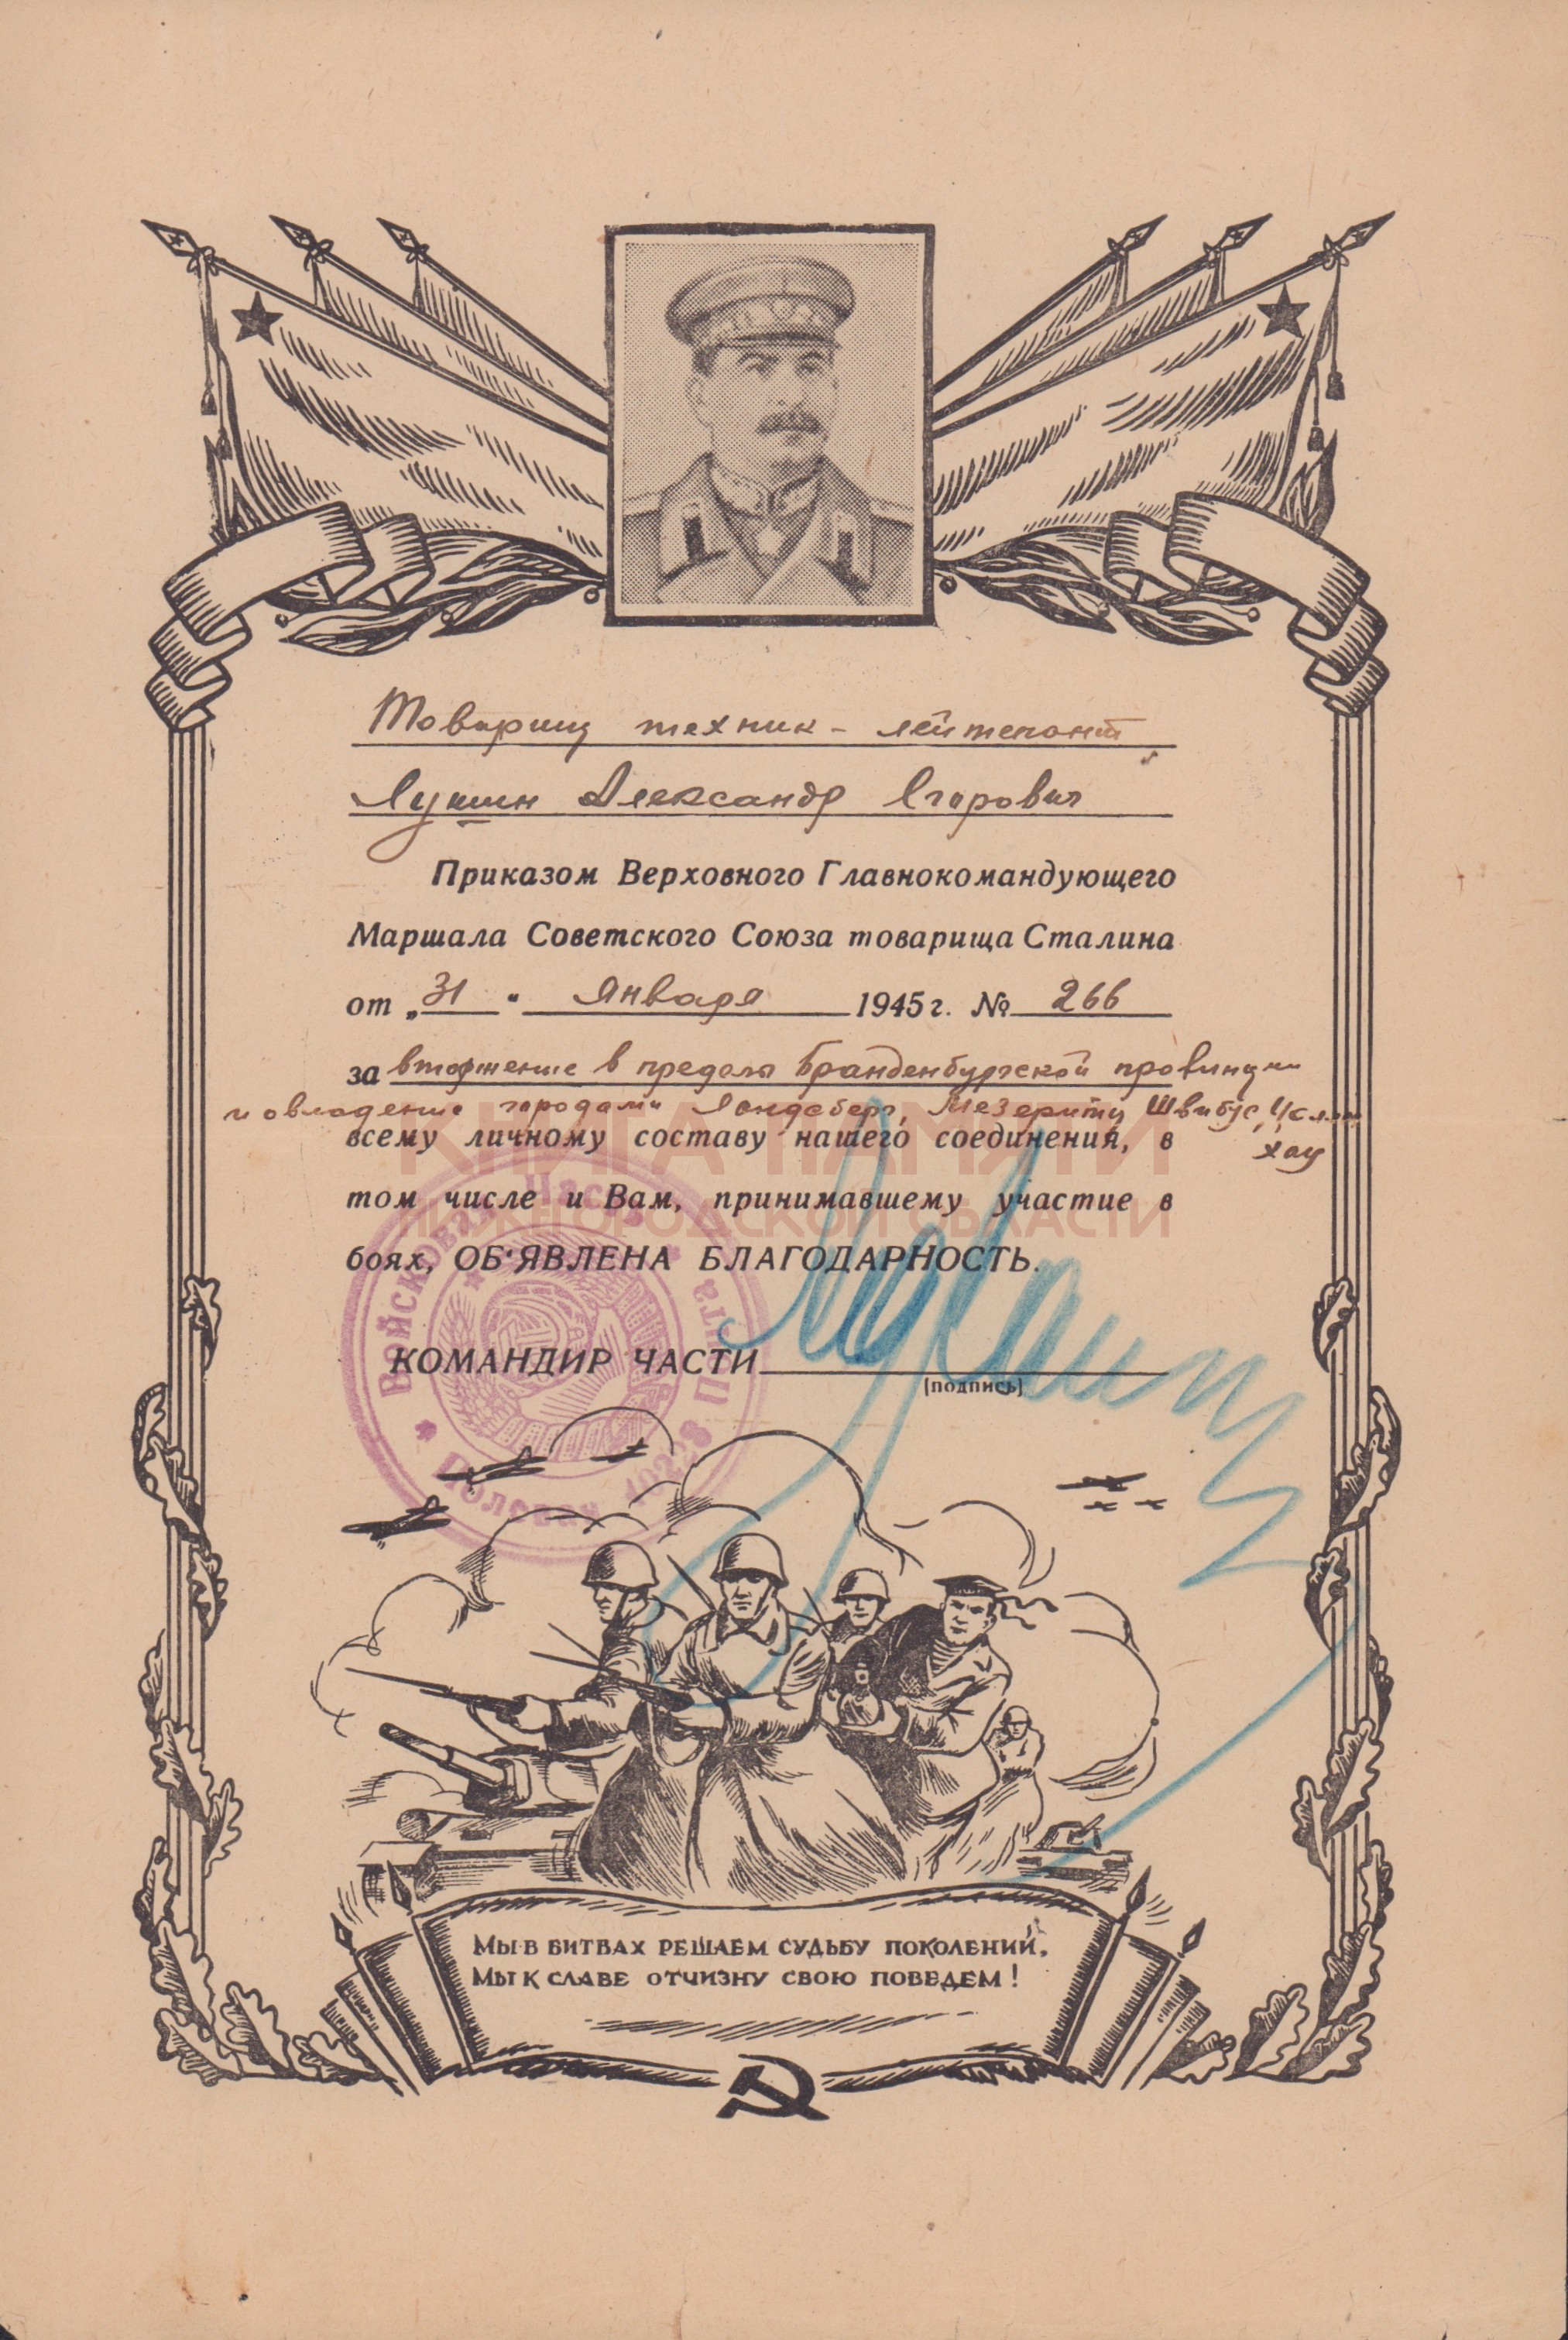 Товарищ техник-лейтенант
Лукин Александр Егорович
Приказом Верховного Главнокомандующего
Маршала Советского Союза товарища Сталина
от „31“ Января 1945 г. № 266
за вторжение в пределы Бранденбургской провинции
и овладение городами Ландсберг, Мезеритц Швибус, Цюлли
хау
КНИГА ПАМЯТИ
всему личному составу нашего соединения, в
том числе и Вам, принимавшему участие в
НИЖЕГОРОДСКОЙ ОБЛАСТИ
боях, ОБ‘ЯВЛЕНА БЛАГОДАРНОСТЬ.
Войсковая Часть
Полевая Почта
КОМАНДИР ЧАСТИ
(подпись)
МЫ В БИТВАХ РЕШАЕМ СУДЬБУ ПОКОЛЕНИЙ,
МЫ К СЛАВЕ ОТЧИЗНУ СВОЮ ПОВЕДЕМ!